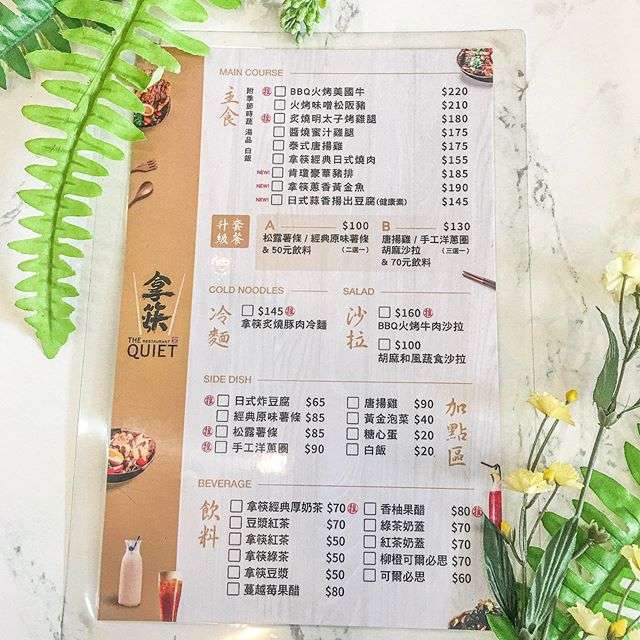 MAIN COURSE
主食
附季節時蔬 湯品 白飯
推 BBQ火烤美國牛 $220
火烤味噌松阪豬 $210
推 炙燒明太子烤雞腿 $180
醬燒蜜汁雞腿 $175
泰式唐揚雞 $175
拿筷經典日式燒肉 $155
NEW! 肯瓊豪華豬排 $185
NEW! 拿筷蔥香黃金魚 $190
NEW! 日式蒜香揚出豆腐(健康素) $145
套餐升級
A $100
松露薯條 / 經典原味薯條
& 50元飲料 (二選一)
B $130
唐揚雞 / 手工洋蔥圈
胡麻沙拉 (三選一)
& 70元飲料
拿筷
THE RESTAURANT
QUIET
COLD NOODLES
冷麵
$145 推
拿筷炙燒豚肉冷麵
SALAD
沙拉
$160 推
BBQ火烤牛肉沙拉
$100
胡麻和風蔬食沙拉
SIDE DISH
加點區
推 日式炸豆腐 $65
經典原味薯條 $85
推 松露薯條 $85
推 手工洋蔥圈 $90
唐揚雞 $90
黃金泡菜 $40
糖心蛋 $20
白飯 $20
BEVERAGE
飲料
拿筷經典厚奶茶 $70 推
豆漿紅茶 $70
拿筷紅茶 $50
拿筷綠茶 $50
拿筷豆漿 $50
蔓越莓果醋 $80
香柚果醋 $80 推
綠茶奶蓋 $70
紅茶奶蓋 $70
柳橙可爾必思 $70
可爾必思 $60